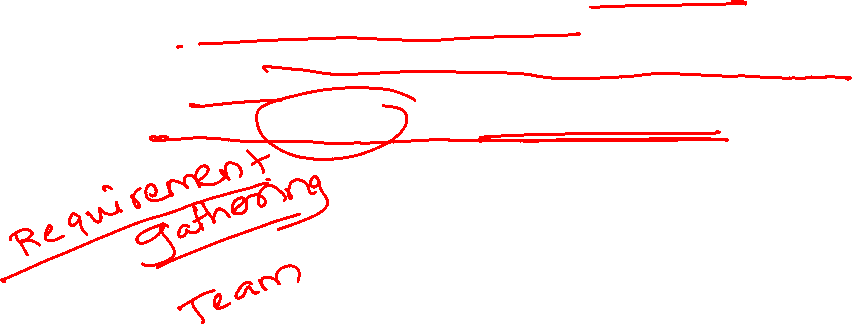 Requirement
gathering
Team